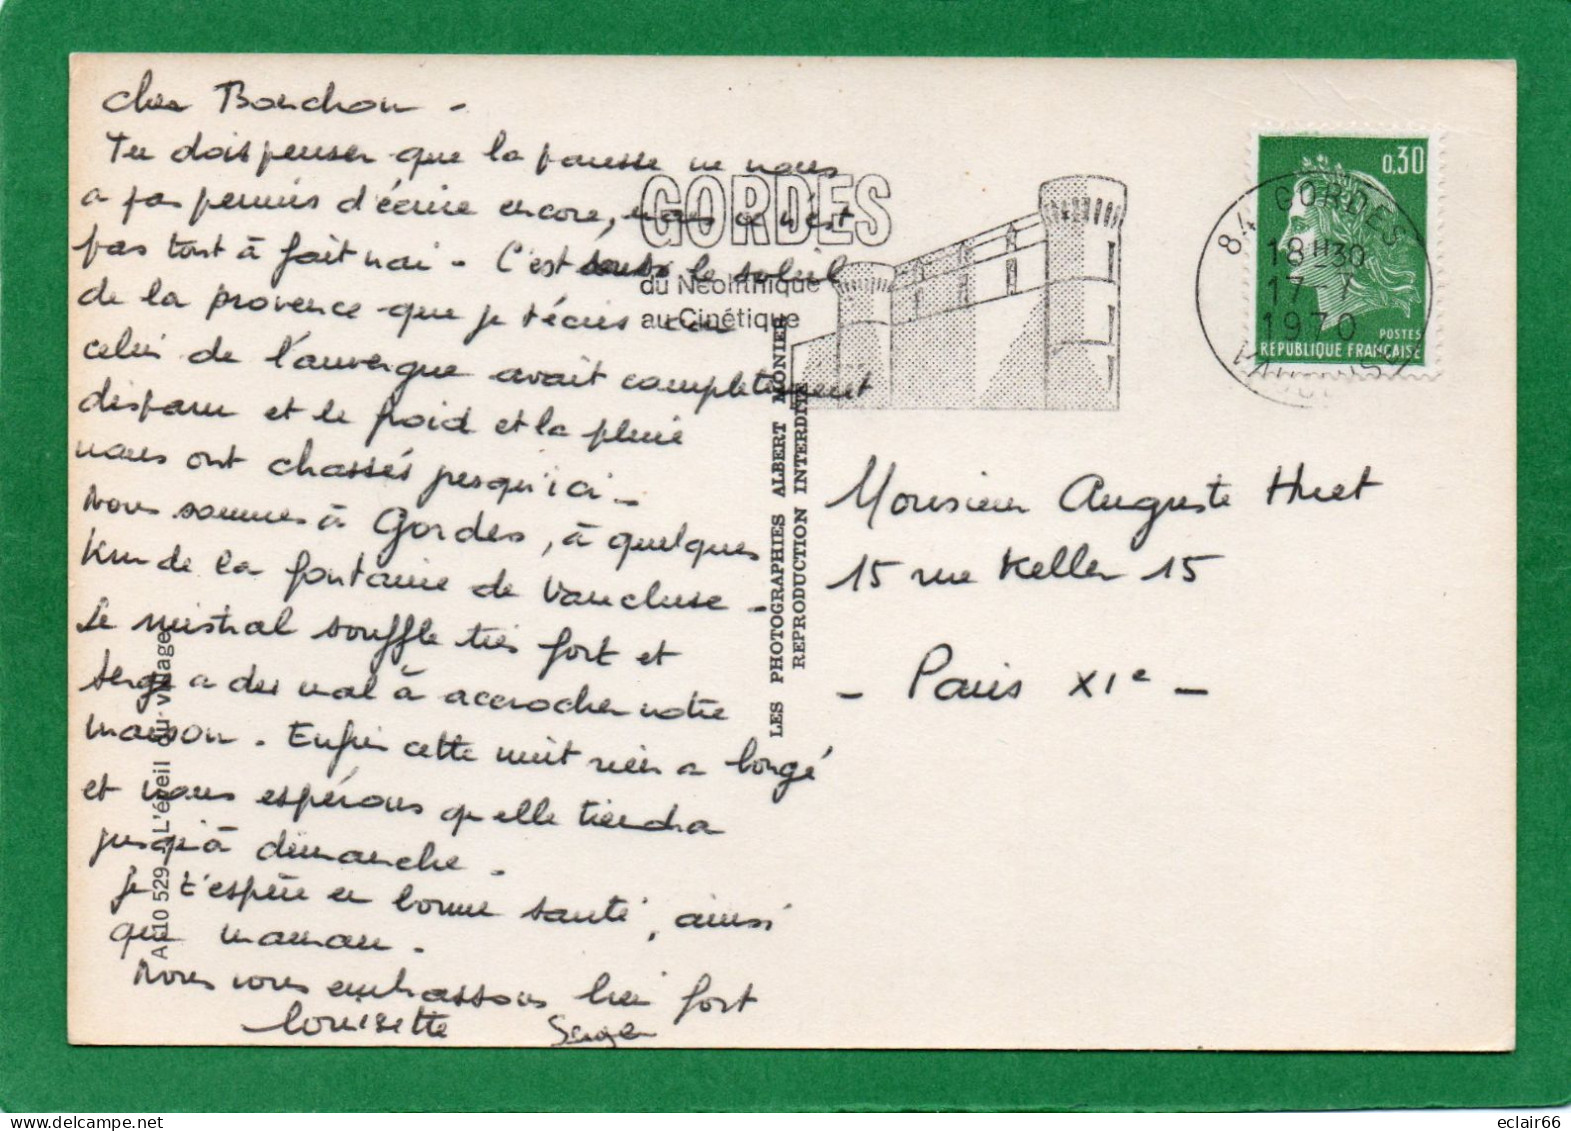 cher Bouchon -
Tu dois penser que la paresse ne nous
a pas permis d'écrire encore, mais ce n'est
pas tout à fait vrai - C'est sous le soleil
de la provence que je t'écris car
celui de l'auvergne avait completement
disparu et le froid et la pluie
nous ont chassés jusqu'ici -
Nous sommes à Gordes, à quelques
Km de la fontaine de Vaucluse -
Le mistral souffle très fort et
Serge a du mal à accrocher notre
maison - Enfin cette nuit rien a bougé
et nous espérons qu'elle tiendra
jusqu'à dimanche -
Je t'espère en bonne santé, ainsi
que maman -
Nous vous embrassons bien fort
Louisette Serge
GORDES
du Néolithique
au Cinétique
84 GORDES
18 H 30
17-7
1970
VAUCLUSE
0,30
POSTES
REPUBLIQUE FRANÇAISE
LES PHOTOGRAPHIES ALBERT MONIER
REPRODUCTION INTERDITE
10 529 - L'éveil du village
Monsieur Auguste Huet
15 rue Keller 15
- Paris XIe -
eclair66